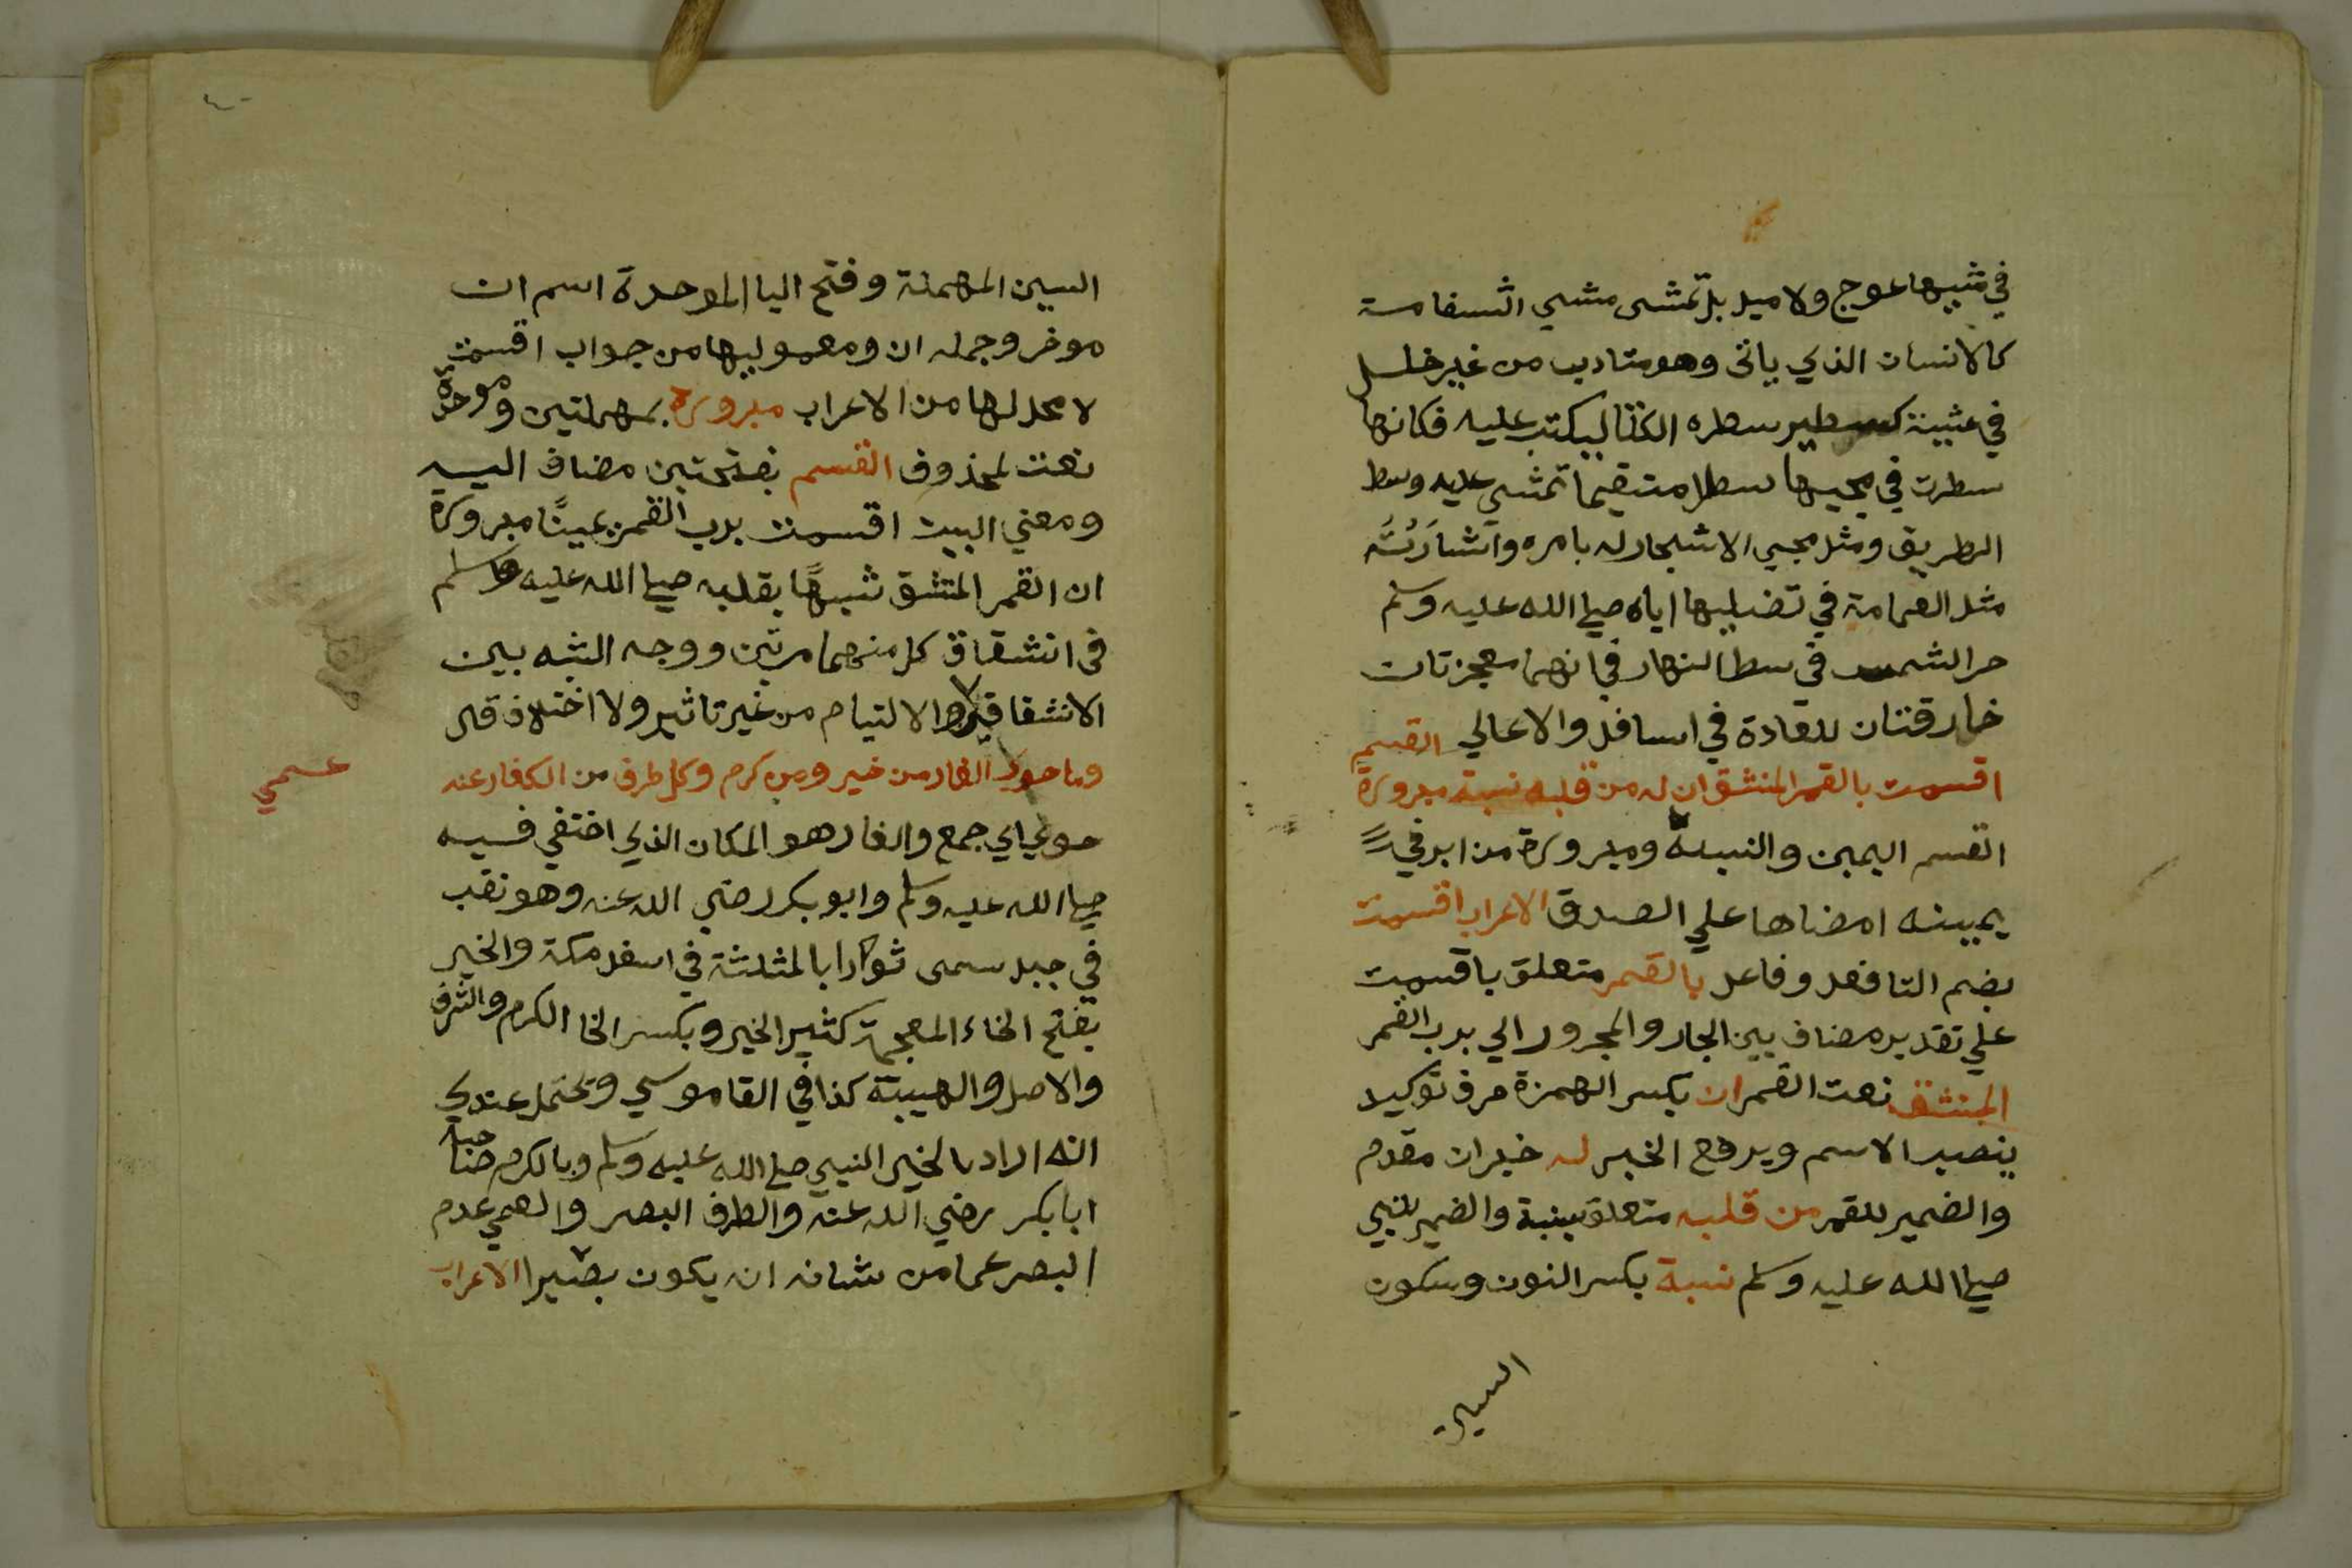 في مشيها عوج ولا ميل بل تمشى مشي اتسقامة
كالانسان الذي ياتى وهو متاديب من غير خلل
في مشية كسطير سطره الكتاب ليكتب عليه فكانها
سطرت في مجيها سطرا مستقيما تمشي عليه وسط
الطريق ومثل مجيي الاشجار له بامره واشارته
مثل الغمامة في تضليلها اياه صلي الله عليه وسلم
حر الشمس في سط النهار فانهما معجزتان
خارقتان للعادة في اسافل والاعالي القسم
اقسمت بالقمر المنشق ان له من قلبه نسبة مبرورة
القسم اليمين والنسبة ومبرورة من ابر في
يمينه امضاها علي الصدق الاعراب اقسمت
بضم التا فعل وفاعل بالقمر متعلق باقسمت
علي تقدير مضاف بين الجار والمجرور الي برب القمر
المنشق نعت القمر ان بكسر الهمزة حرف توكيد
ينصب الاسم ويرفع الخبر له خبران مقدم
والضمير للقمر من قلبه متعلق بنسبة والضمير للنبي
صلي الله عليه وسلم نسبة بكسر النون وسكون
السين
السين المهملة وفتح اليا الموحدة اسم ان
موخر وجمله ان ومعموليها من جواب اقسمت
لا محل لها من الاعراب مبرورة بمهملتين وموحدة
نعت لمحذوف القسم بفتحتين مضاف اليه
ومعني البيت اقسمت برب القمر يمينًا مبرورة
ان القمر المنشق شبهًا بقلبه صلي الله عليه وسلم
في انشقاق كل منهما مرتين ووجه الشبه بين
الانشقاقين والالتيام من غير تاثير ولا اختلاف قال
وما حوى الغار من خير ومن كرم وكل طرف من الكفار عنه
عمي
حوي اي جمع والغار هو المكان الذي اختفي فيه
صلي الله عليه وسلم وابو بكر رضي الله عنه وهو نقب
في جبل سمى ثورا بالمثلثة في اسفل مكة والخير
بفتح الخاء المعجمة كثير الخير وبكسر الخا الكرم والشرف
والاصل والهيبة كذا في القاموس ويحتمل عندي
انه اراد بالخير النبي صلي الله عليه وسلم وبالكرم صاحبه
ابابكر رضي الله عنه والطرف البصر والعمي عدم
البصر عما من شانه ان يكون بصيرا الاعراب